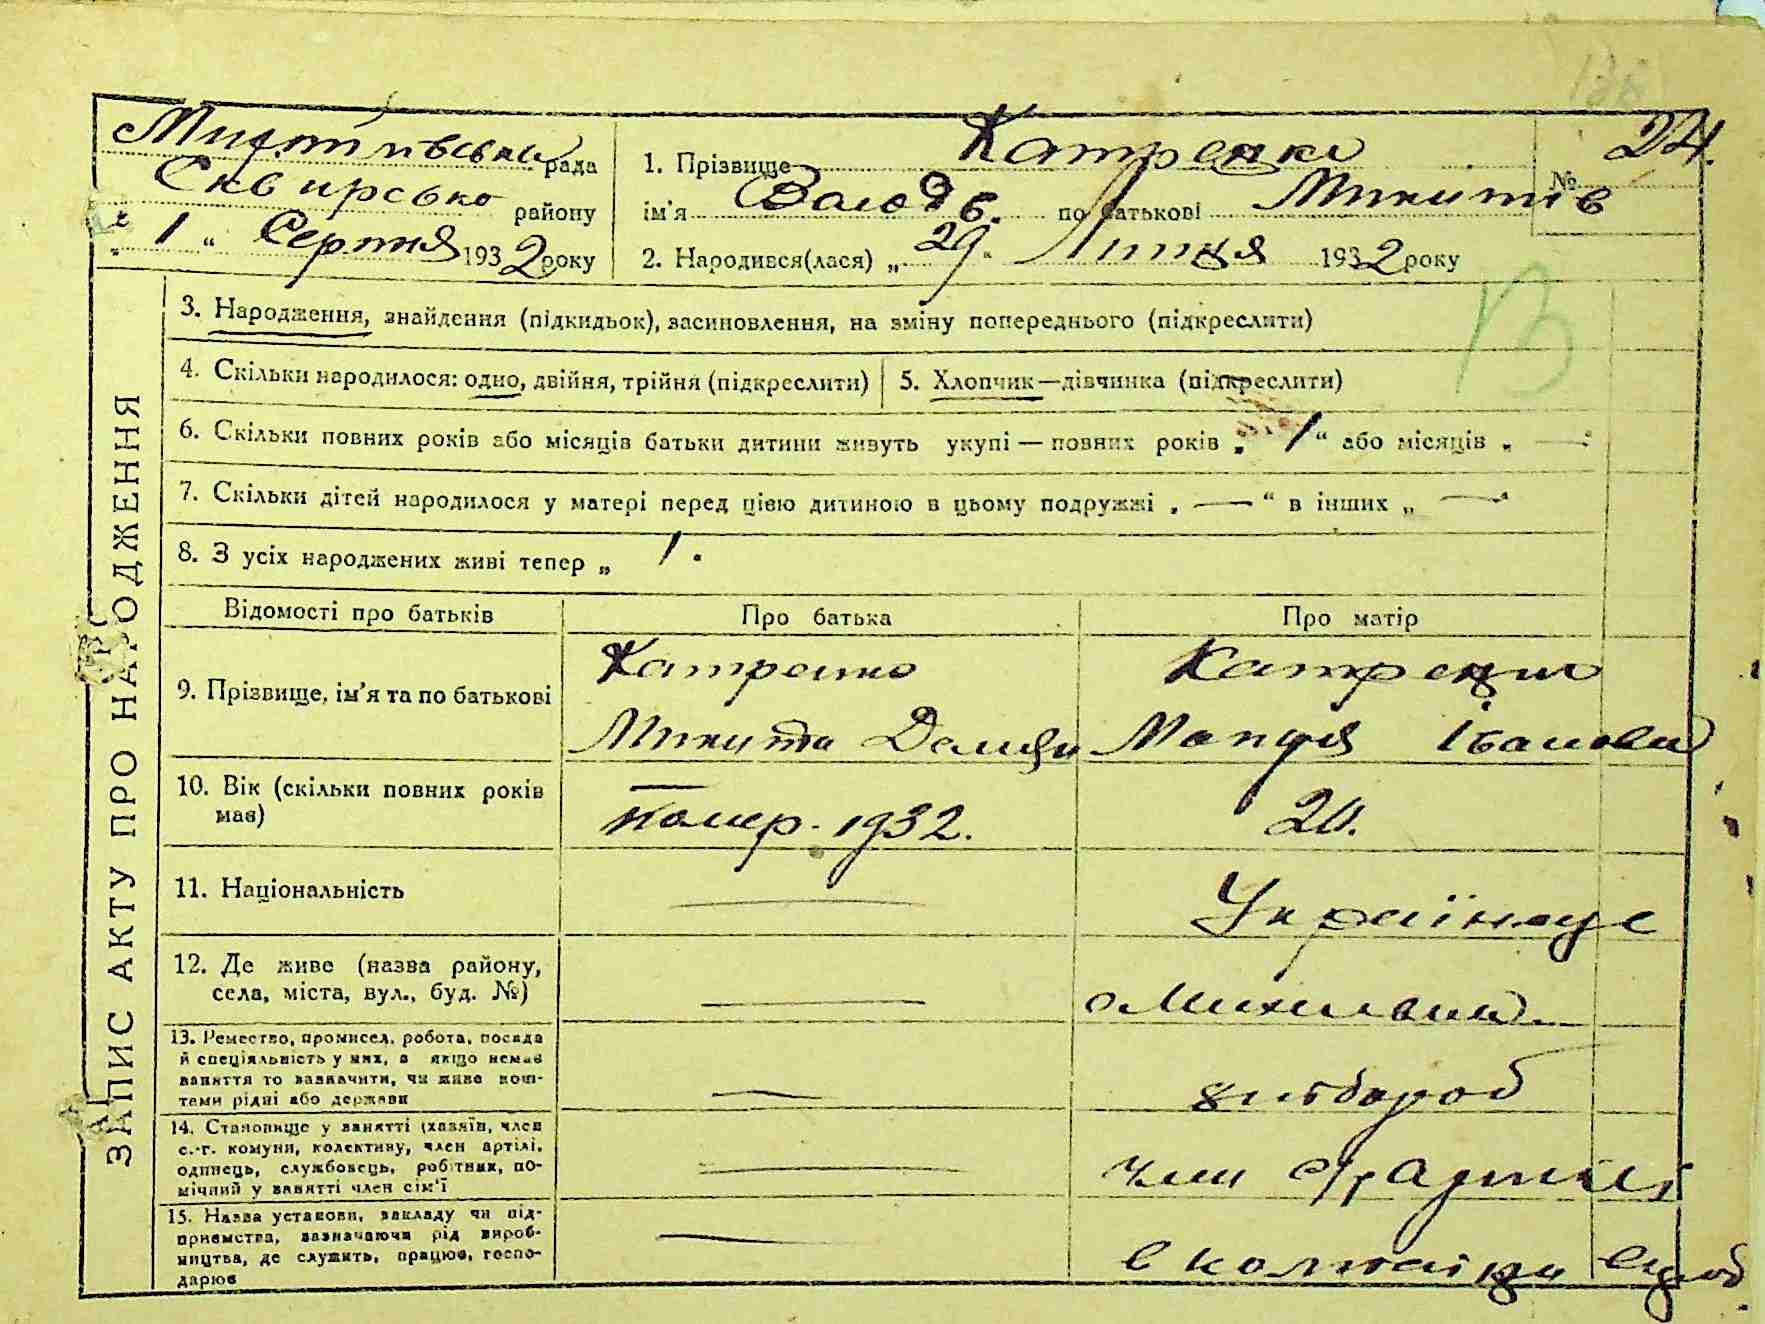 188
рада
Сквирсько району
„ 1 “ Серпня 1932 року
1. Прізвище Катренко
№ 24.
ім'я Волод. по батькові Микитів
2. Народився(лася) „ 29 “ Липня 1932 року
ЗАПИС АКТУ ПРО НАРОДЖЕННЯ
3. Народження, знайдення (підкидьок), засиновлення, на зміну попереднього (підкреслити)
4. Скільки народилося: одно, двійня, трійня (підкреслити)
5. Хлопчик—дівчинка (підкреслити)
6. Скільки повних років або місяців батьки дитини живуть укупі — повних років „ 1 “ або місяців „ — “
7. Скільки дітей народилося у матері перед цією дитиною в цьому подружжі „ — “ в інших „ — “
8. З усіх народжених живі тепер „ 1.
Відомості про батьків
Про батька
Про матір
9. Прізвище, ім'я та по батькові
Катренко
Микита Демян
Катренко
Мотря Іванова
10. Вік (скільки повних років має)
помер. 1932.
20.
11. Національність
—
Українка
12. Де живе (назва району,
села, міста, вул., буд. №)
—
13. Ремество, промисел, робота, посада
й спеціяльність у них, а якщо немає
заняття то зазначити, чи живе кош-
тами рідні або держави
—
хлібороб
14. Становище у занятті (хазяїн, член
с.-г. комуни, колективу, член артілі,
одинець, службовець, робітник, по-
мічний у занятті член сім'ї
—
член с/г артілі
15. Назва установи, закладу чи під-
приємства, зазначаючи рід вироб-
ництва, де служить, працює, госпо-
дарює
—
в колгоспі